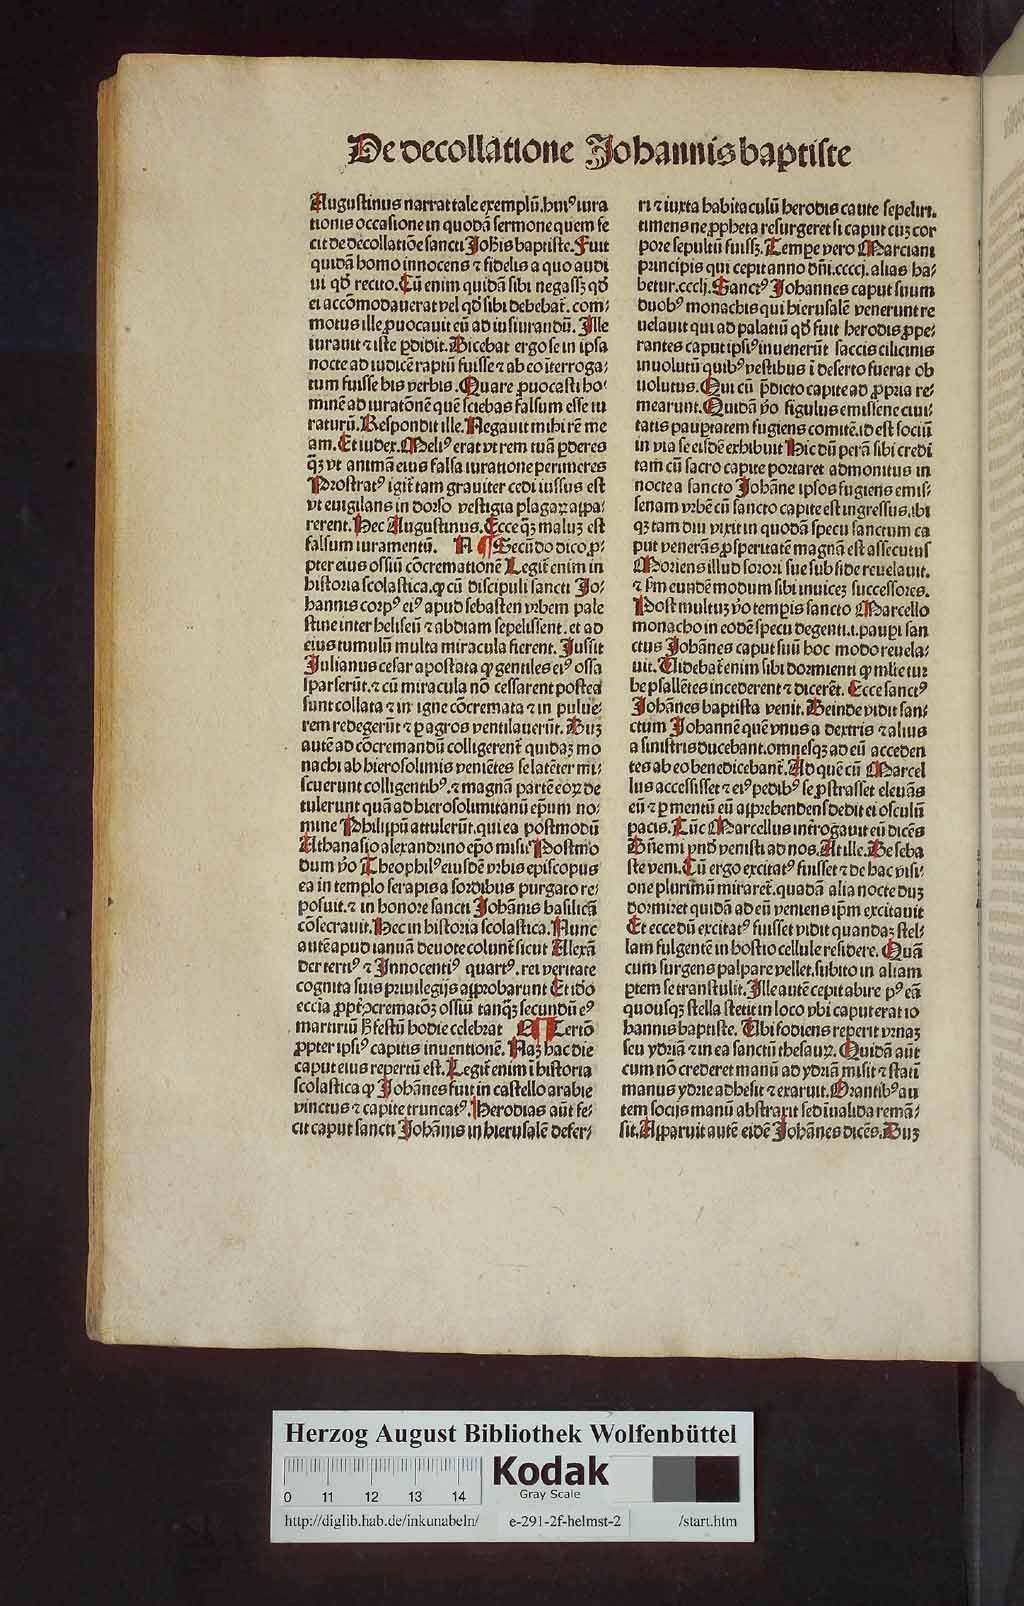 De decollatione Johannis baptiste
Augustinus narrat tale exemplũ. huiꝰ iura
tionis occasione in quodã sermone quem fe
cit de decollatiõe sancti Joh̃is baptiste. Fuit
quidã homo innocens ⁊ fidelis a quo audi
ui qd̛ recito. Cũ enim quidã sibi negassꝫ qd̛
ei accõmodauerat vel qd̛ sibi debebat̃. com⸗
motus ille ꝓuocauit eũ ad iusiurandũ. Ille
iurauit ⁊ iste ꝑdidit. Dicebat ergo se in ipsa
nocte ad iudicẽ raptũ fuisse ⁊ ab eo ĩterroga⸗
tum fuisse his verbis. Quare ꝓuocasti ho⸗
minẽ ad iuratõnẽ quẽ sciebas falsum esse iu
raturũ. Respondit ille. Negauit mihi rẽ me
am. Et iudex. Meliꝰ erat vt rem tuã ꝑderes
qꝫ̃ vt animã eius falsa iuratione perimeres
Prostratꝰ igit̃ tam grauiter cedi iussus est
vt euigilans in dorso vestigia plagaꝝ appa⸗
rerent. Hec Augustinus. Ecce qꝫ̃ maluꝫ est
falsum iuramentũ. N ¶ Secũdo dico ꝓ⸗
pter eius ossiũ cõcremationẽ Legit̃ enim in
historia scolastica. ꝙ cũ discipuli sancti Jo⸗
hannis corpꝰ eiꝰ apud sebasten vrbem pale
stine inter heliseũ ⁊ abdiam sepelissent. et ad
eius tumulũ multa miracula fierent. Jussit
Julianus cesar apostata ꝙ gentiles eiꝰ ossa
sparserũt. ⁊ cũ miracula nõ cessarent postea
sunt collata ⁊ in igne cõcremata ⁊ in pulue⸗
rem redegerũt ⁊ ꝑ agros ventilauerũt. Duꝫ
autẽ ad cõcremandũ colligerent̃ quidaꝫ mo
nachi ab hierosolimis veniẽtes se latẽter mi⸗
scuerunt colligentibꝰ. ⁊ magnã partẽ eoꝝ de
tulerunt quã ad hierosolimitanũ ep̃um no⸗
mine Philippũ attulerũt. qui ea postmodũ
Athanasio alexandrino ep̃o misit. Postmo
dum ṽo Theophilꝰ eiusdẽ vrbis episcopus
ea in templo serapis a sordibus purgato re⸗
posuit. ⁊ in honore sancti Johãnis basilicã
cõsecrauit. Hec in historia scolastica. Nunc
autẽ apud ianuã deuote colunt̃ sicut Allexã
der tertiꝰ ⁊ Innocentiꝰ quartꝰ. rei veritate
cognita suis priuilegijs approbarunt Et iđo
eccĩa ꝓpt̃ ꝯcrematõꝫ ossiũ tanqꝫ̃ secundũ eꝰ
martiriũ ꝫ festũ hodie celebrat ¶ Tertio
ꝓpter ipsiꝰ capitis inuentionẽ. Naꝫ hac die
caput eius repertũ est. Legit̃ enim ĩ historia
scolastica ꝙ Johãnes fuit in castello arabie
vinctus ⁊ capite truncatꝰ. Herodias aũt fe⸗
cit caput sancti Johãnis in hierusalẽ defer⸗
ri ⁊ iuxta habitaculũ herodis caute sepeliri.
timens ne ꝓpheta resurgeret si caput cuꝫ cor
pore sepultũ fuissꝫ. Tempe vero Marciani
principis qui cepit anno dñi. ccccj. alias ha⸗
betur. cccIj. Sanctꝰ Johannes caput suum
duobꝰ monachis qui hierusalẽ venerunt re
uelauit qui ad palatiũ qd̛ fuit herodis ꝓpe⸗
rantes caput ipsiꝰ inuenerũt saccis cilicinis
inuolutũ quibꝰ vestibus ĩ deserto fuerat ob
uolutus. Qui cũ p̃dicto capite ad ꝓpria re⸗
mearunt. Quidã ṽo figulus emissene ciui⸗
tatis paup̱tatem fugiens comitẽ. id est sociũ
in via se eisdẽ exhibuit Hic dũ perã sibi credi
tam cũ sacro capite portaret admonitus in
nocte a sancto Johãne ipsos fugiens emis⸗
senam vrbẽ cũ sancto capite est ingressus. ibi
qꝫ tam diu vixit in quodã specu sanctum ca
put venerãs ꝓsperitatẽ magnã est assecutus
Moriens illud sorori sue sub fide reuelauit.
⁊ s̃m eundẽ modum sibi inuiceꝫ successores.
Post multuꝫ ṽo tempis sancto Marcello
monacho in eodẽ specu degenti. i. pauꝑi san
ctus Johãnes caput suũ hoc modo reuela⸗
uit. Uidebat̃ enim sibi dormienti ꝙ mlte tur
be psallẽtes incederent ⁊ dicerẽt. Ecce sanctꝰ
Johãnes baptista venit. Deinde vidit san⸗
ctum Johannẽ quẽ vnus a dextris ⁊ alius
a sinistris ducebant. omnesqꝫ ad eũ acceden
tes ab eo benedicebant̃. Ad quẽ cũ Marcel
lus accessisset ⁊ eiꝰ pedibꝰ se ꝓstrasset eleuãs
eũ ⁊ ꝑ mentũ eũ apprehendens dedit ei osculũ
pacis. Tũc Marcellus introg̃auit eũ dicẽs
Dñe mi vnd̛ venisti ad nos. At ille. De seba
ste veni. Cũ ergo excitatꝰ fuisset ⁊ de hac visi⸗
one plurimũ miraret̃. quadã alia nocte duꝫ
dormiret quidã ad eũ veniens ip̃m excitauit
Et ecce dũ excitatꝰ fuisset vidit quandaꝫ stel⸗
lam fulgentẽ in hostio cellule residere. Quã
cum surgens palpare vellet. subito in aliam
ꝑtem se transtulit. Ille autẽ cepit abire pꝰ eã
quousqꝫ stella stetit in loco vbi caput erat io
hannis baptiste. Ubi fodiens reperit vrnaꝫ
seu ydriã ⁊ in ea sanctũ thesauꝝ. Quidã aũt
cum nõ crederet manũ ad ydriã misit ⁊ stati
manus ydrie adhesit ⁊ exaruit. Orantibꝰ au
tem socijs manũ abstraxit sed ĩualida remã⸗
sit. Apparuit autẽ eidẽ Johãnes dicẽs. Duꝫ
Herzog August Bibliothek Wolfenbüttel
Kodak
Gray Scale
0 11 12 13 14
http://diglib.hab.de/inkunabeln/ e-291-2f-helmst-2 /start.htm